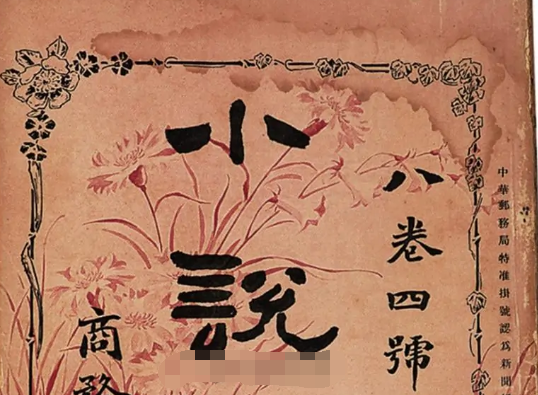 中華郵務局特准掛號認爲新聞
八卷四號
小說
商務